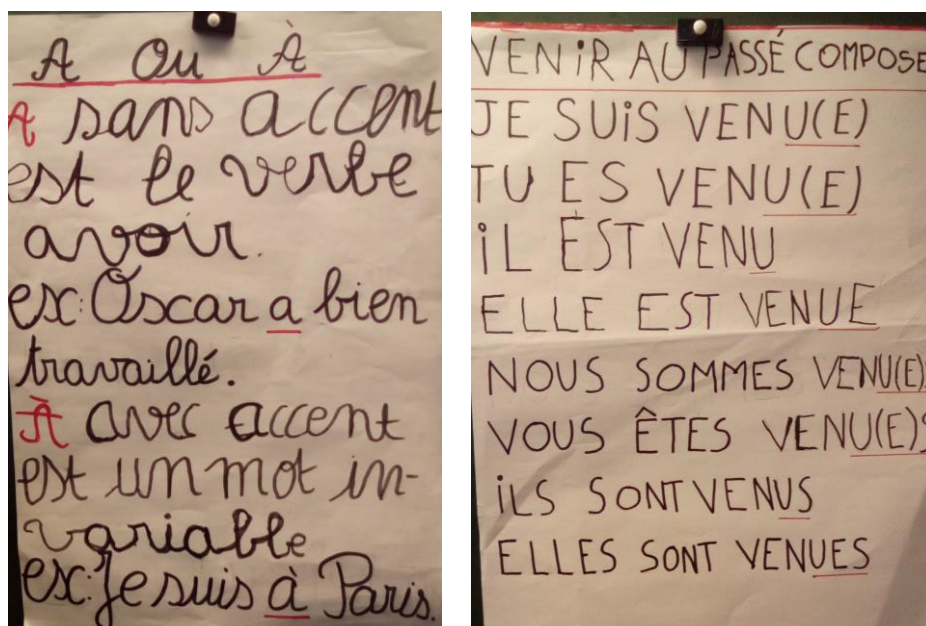 A ou À
A sans accent
est le verbe
avoir.
ex: Oscar a bien
travaillé.
À avec accent
est un mot in-
variable
ex: Je suis à Paris.
VENIR AU PASSÉ COMPOSE
JE SUIS VENU(E)
TU ES VENU(E)
IL EST VENU
ELLE EST VENUE
NOUS SOMMES VENU(E)S
VOUS ÊTES VENU(E)S
ILS SONT VENUS
ELLES SONT VENUES